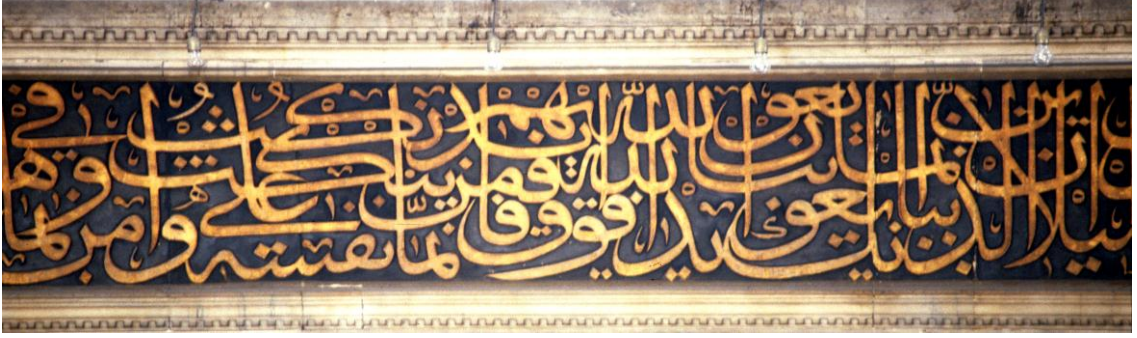 ان الذين يبايعونك انما يبايعون الله يد الله فوق ايديهم فمن نكث فانما ينكث على نفسه ومن اوفى بما